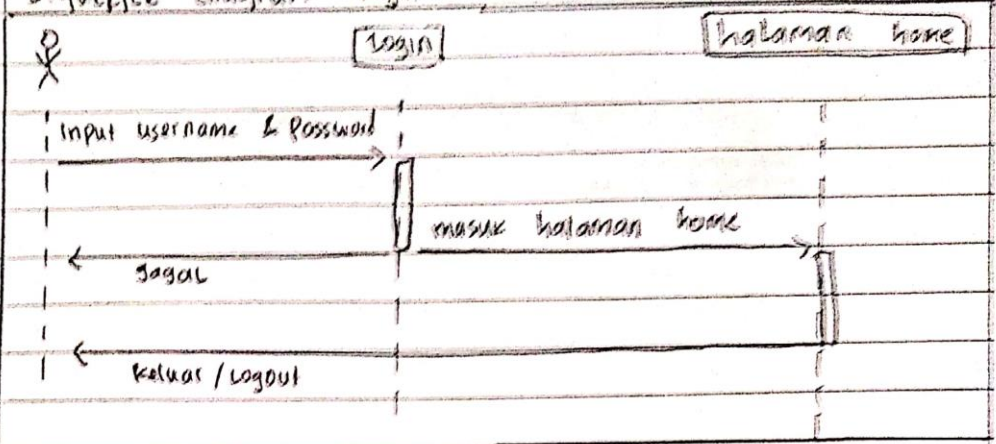 diagram
Login
halaman home
input username & Password
masuk halaman home
gagal
keluar / Logout